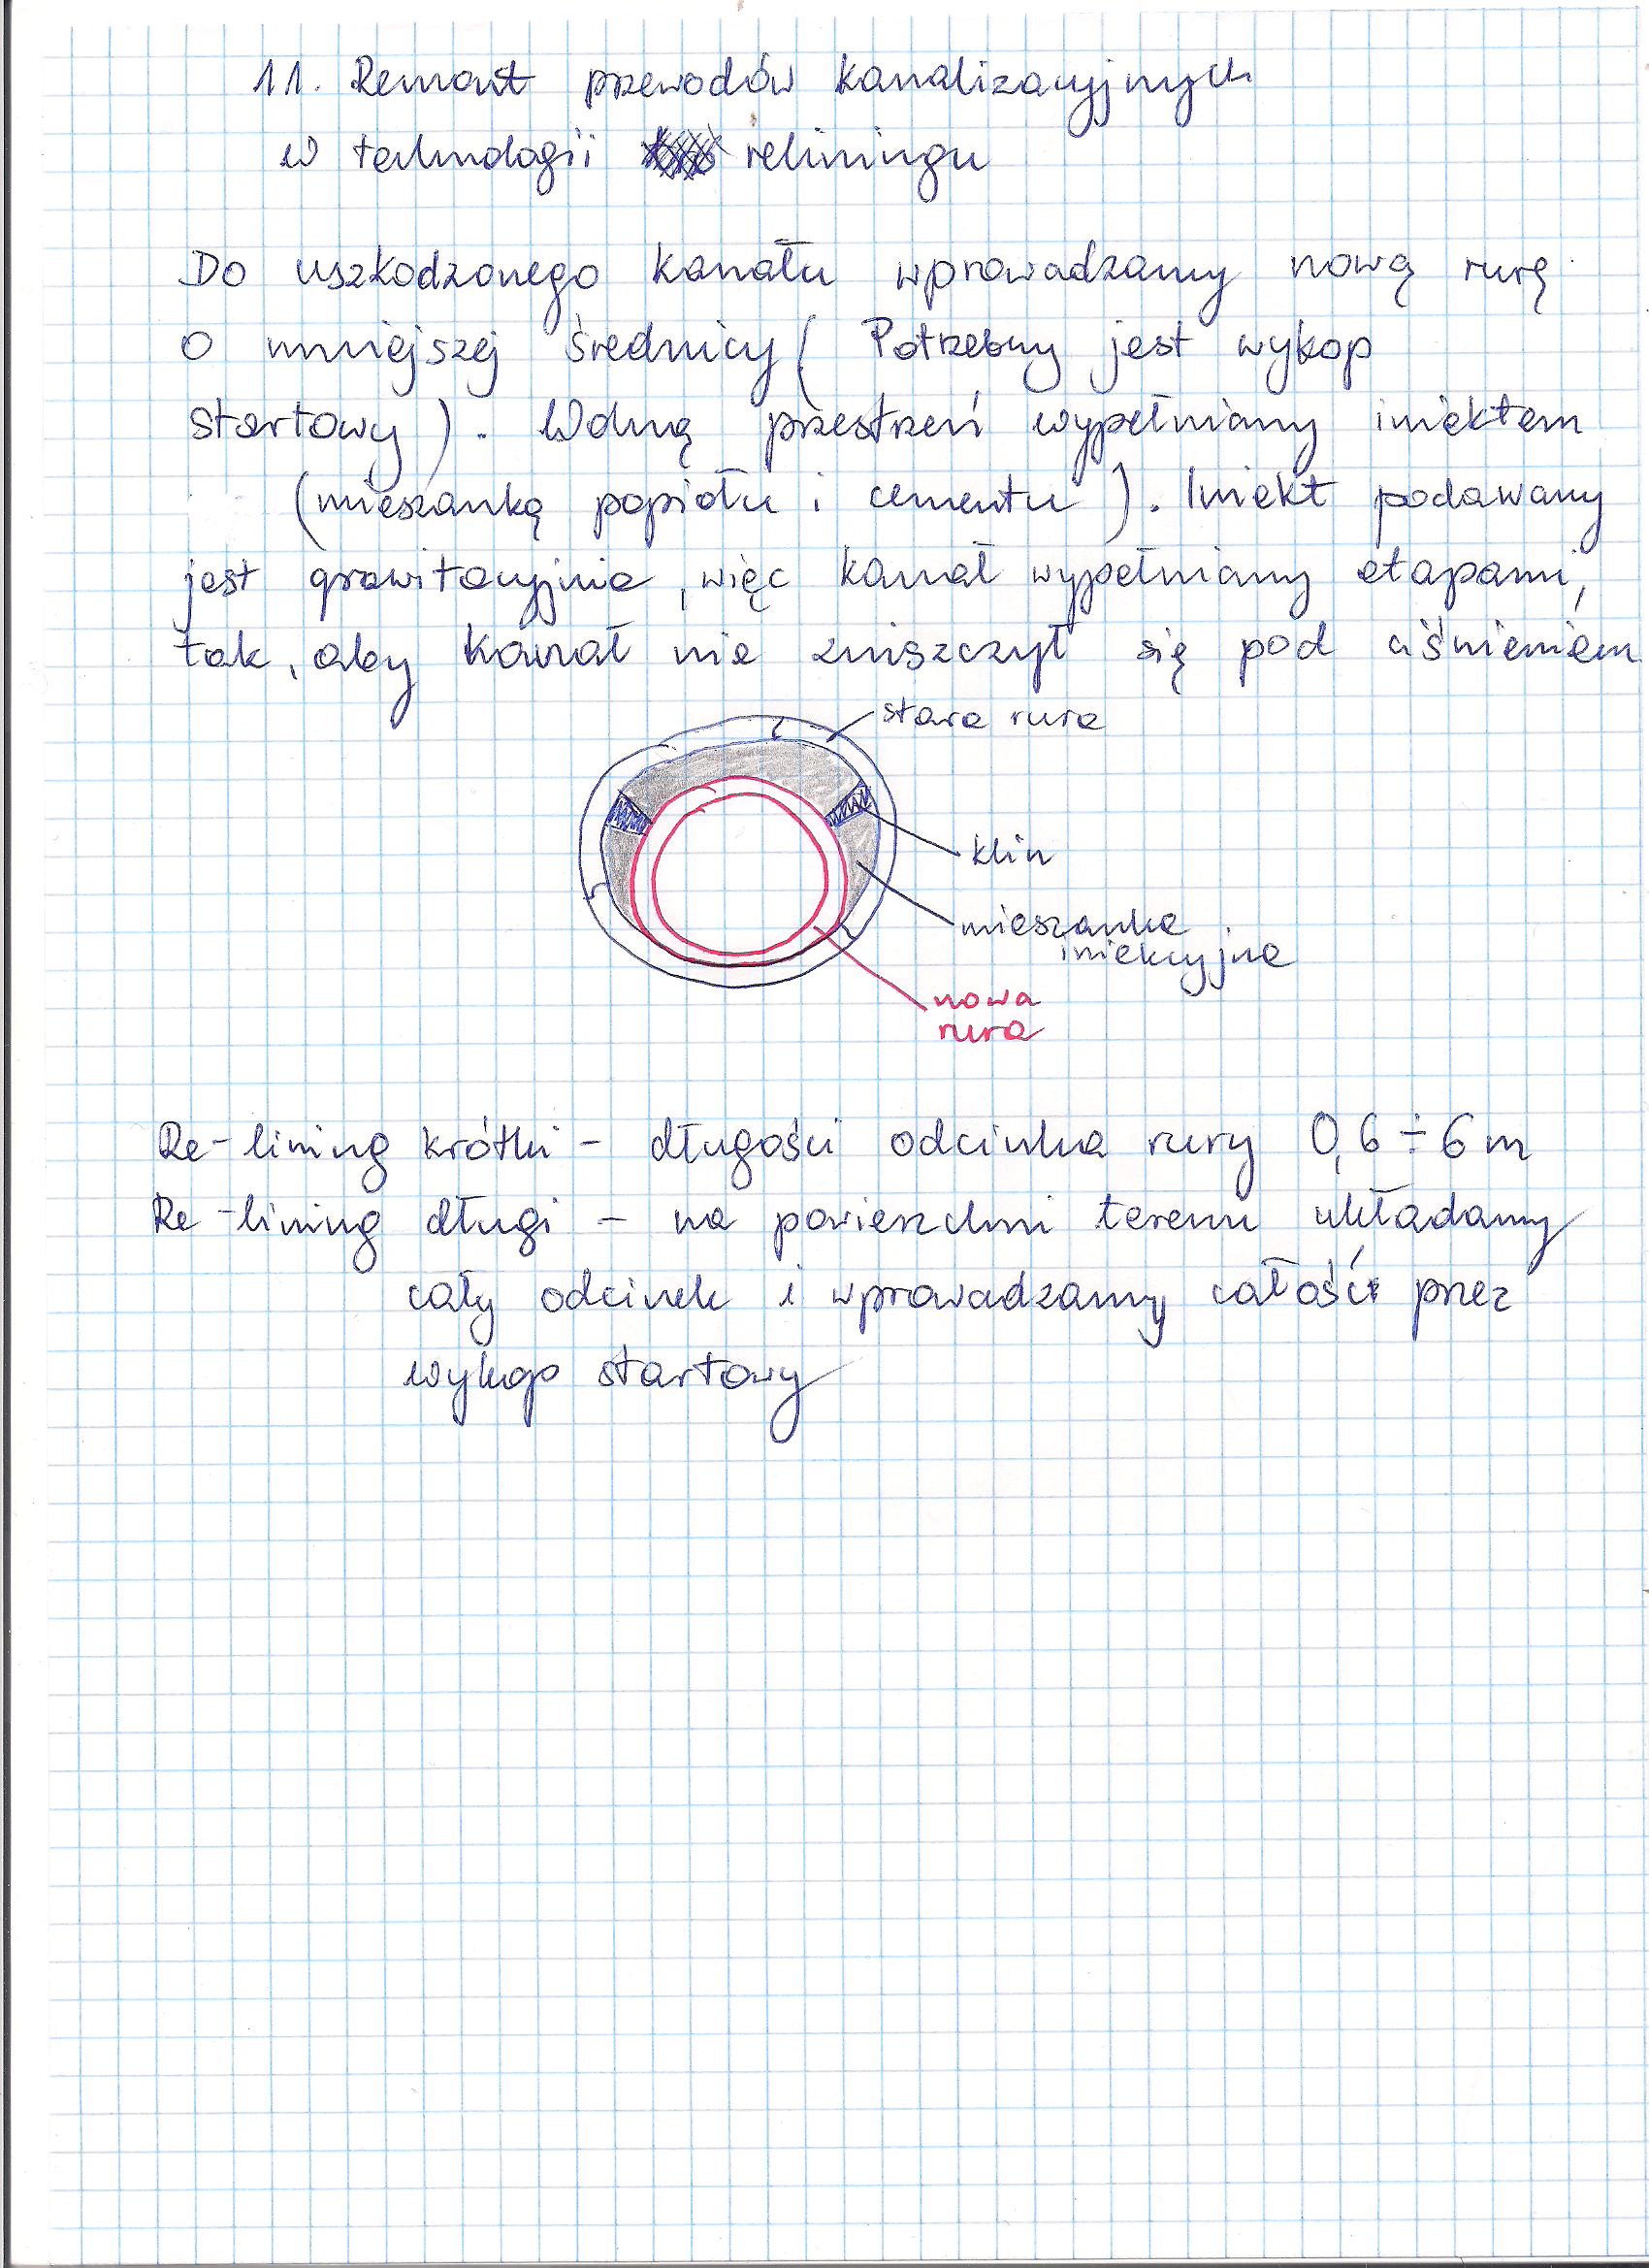 11. Remont przewodów kanalizacyjnych
w technologii reliningu
Do uszkodzonego kanału wprowadzamy nową rurę
o mniejszej średnicy ( Potrzebny jest wykop
startowy ). Wolną przestrzeń wypełniamy iniektem
(mieszanką popiołu i cementu ). Iniekt podawany
jest grawitacyjnie, więc kanał wypełniamy etapami,
tak, aby kanał nie zniszczył się pod ciśnieniem
stara rura
klin
mieszanka
iniekcyjna
nowa
rura
Re-lining krótki - długości odcinka rury 0,6÷6m
Re-lining długi - na powierzchni terenu układamy
cały odcinek i wprowadzamy całość przez
wykop startowy